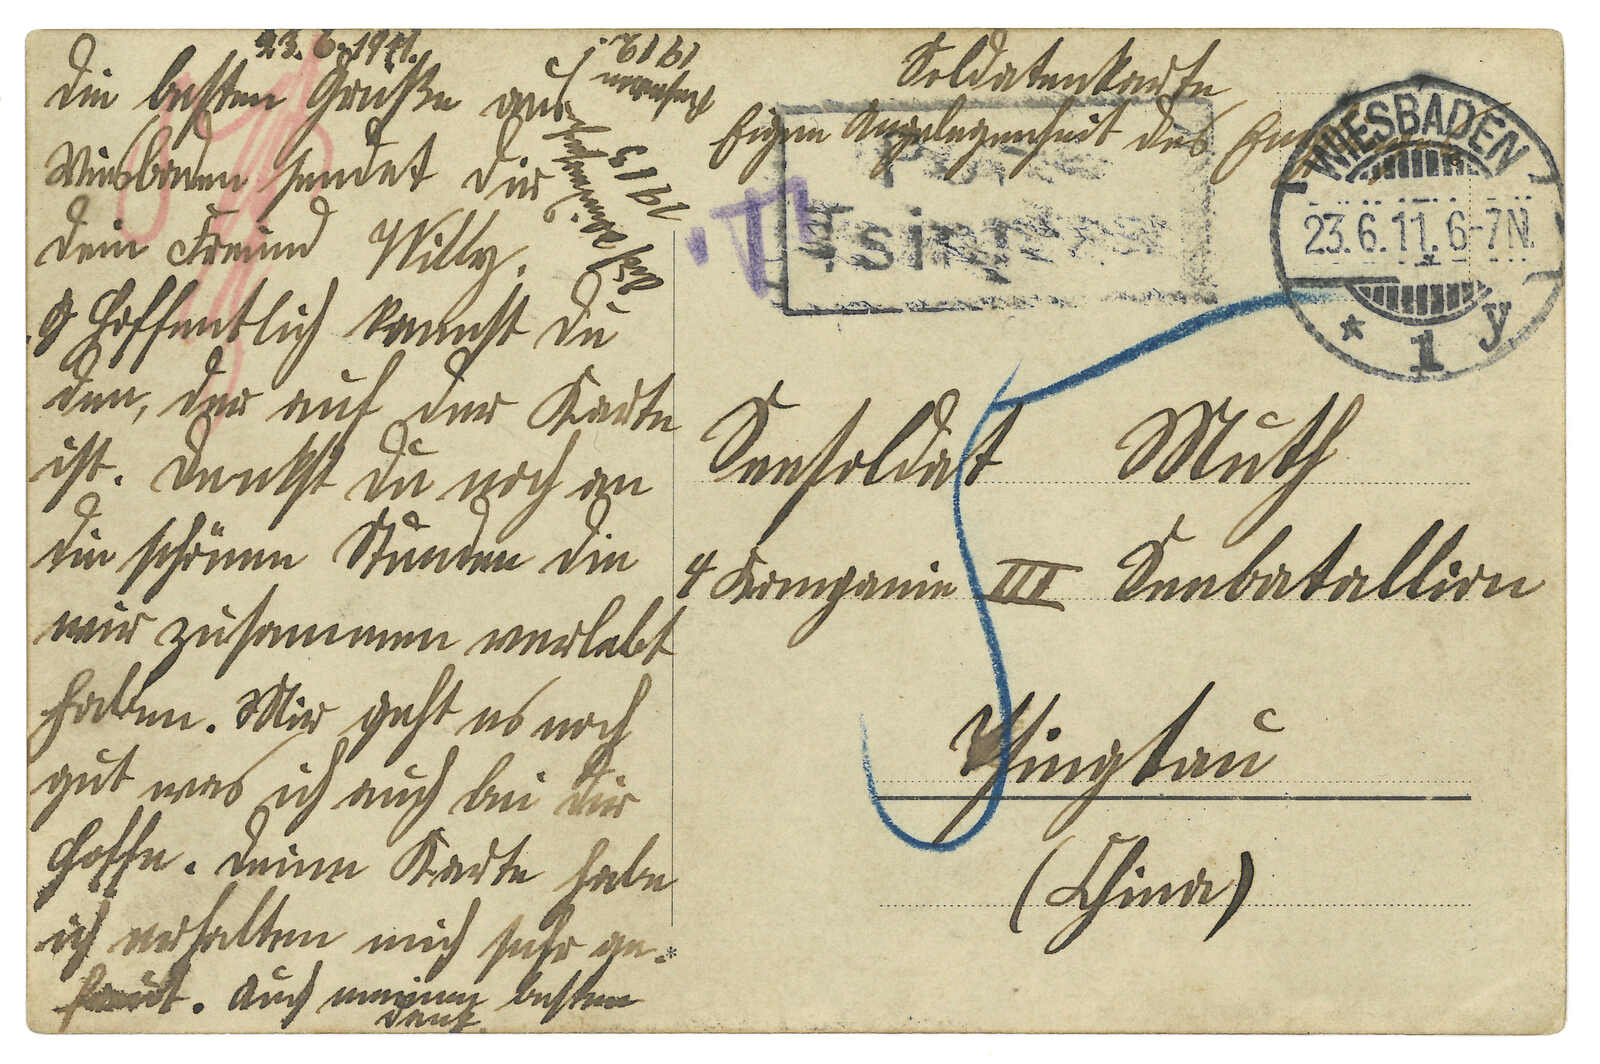 23. 6. 1911.
Die besten Grüße aus
Wiesbaden sendet Dir
Dein Freund Willy.
Hoffentlich kennst Du
den, der auf der Karte
ist. Denkst Du noch an
die schönen Stunden die
wir zusammen verlebt
haben. Mir geht es noch
gut was ich auch bei Dir
hoffe. Deine Karte habe
ich erhalten mich sehr ge-
freut. Auch meinen besten
Dank
Auf
Wiedersehn
1913
1912.
Soldatenkarte
Eigene Angelegenheit des
WIESBADEN
23.6.11. 6-7N.
* 1 y
T
Tsingtau
Seesoldat Muth
4 Kompanie III Seebatallion
Tsingtau
(China)